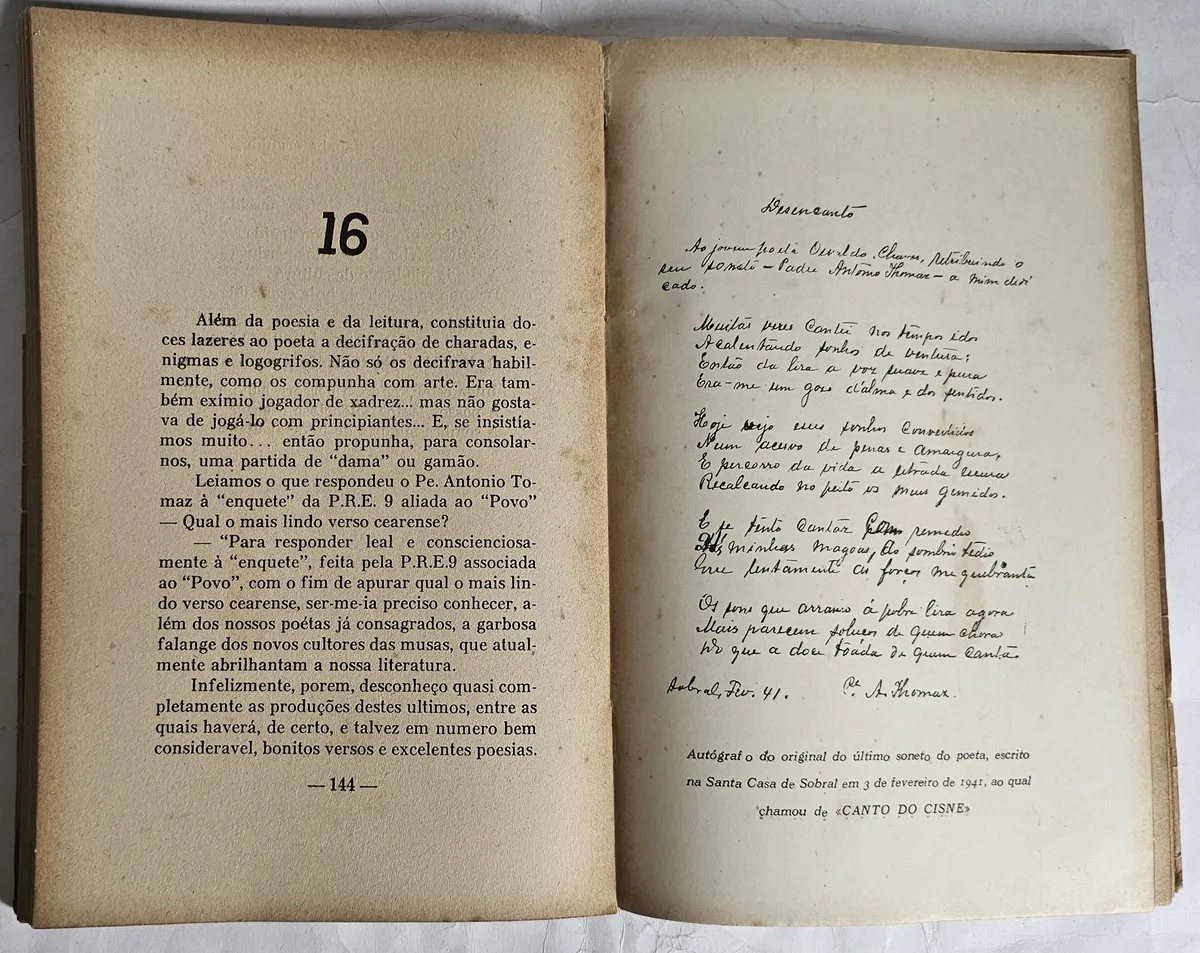 16
Além da poesia e da leitura, constituia do-
ces lazeres ao poeta a decifração de charadas, e-
nigmas e logogrifos. Não só os decifrava habil-
mente, como os compunha com arte. Era tam-
bém exímio jogador de xadrez... mas não gosta-
va de jogá-lo com principiantes... E, se insistía-
mos muito... então propunha, para consolar-
nos, uma partida de “dama” ou gamão.
Leiamos o que respondeu o Pe. Antonio To-
maz à “enquete” da P.R.E. 9 aliada ao “Povo”
— Qual o mais lindo verso cearense?
— “Para responder leal e conscienciosa-
mente à “enquete”, feita pela P.R.E.9 associada
ao “Povo”, com o fim de apurar qual o mais lin-
do verso cearense, ser-me-ia preciso conhecer, a-
lém dos nossos poétas já consagrados, a garbosa
falange dos novos cultores das musas, que atual-
mente abrilhantam a nossa literatura.
Infelizmente, porem, desconheço quasi com-
pletamente as produções destes ultimos, entre as
quais haverá, de certo, e talvez em numero bem
consideravel, bonitos versos e excelentes poesias.
— 144 —
Desencanto
Ao jovem poeta Osvaldo Chaves, retribuindo o
seu soneto — Padre Antonio Thomaz — a mim dedi
cado.
Muitas vezes cantei nos tempos idos
Acalentando sonhos de ventura;
Então da lira a voz suave e pura
Era-me um gozo d'alma e dos sentidos.
Hoje vejo esses sonhos convertidos
Num acervo de penas e amargura,
E percorro da vida a estrada escura
Recalcando no peito os meus gemidos.
E se tento cantar como remedio
Ás minhas magoas, ao sombrio tédio
Que lentamente as forças me quebranta
Os sons que arranco á pobre lira agora
Mais parecem soluços de quem chora
Do que a doce toada de quem canta.
Sobral, Fev. 41. Pe. A. Thomaz.
Autógraf o do original do último soneto do poeta, escrito
na Santa Casa de Sobral em 3 de fevereiro de 1941, ao qual
chamou de «CANTO DO CISNE»